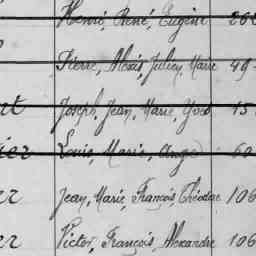 Henri, René, Eugène 26
Pierre, Alexis, Julien, Marie 49
Joseph, Jean, Marie, Yves 15
Louis, Marie, Ange 60
Jean, Marie, François, Théodore 106
Victor, François, Alexandre 106